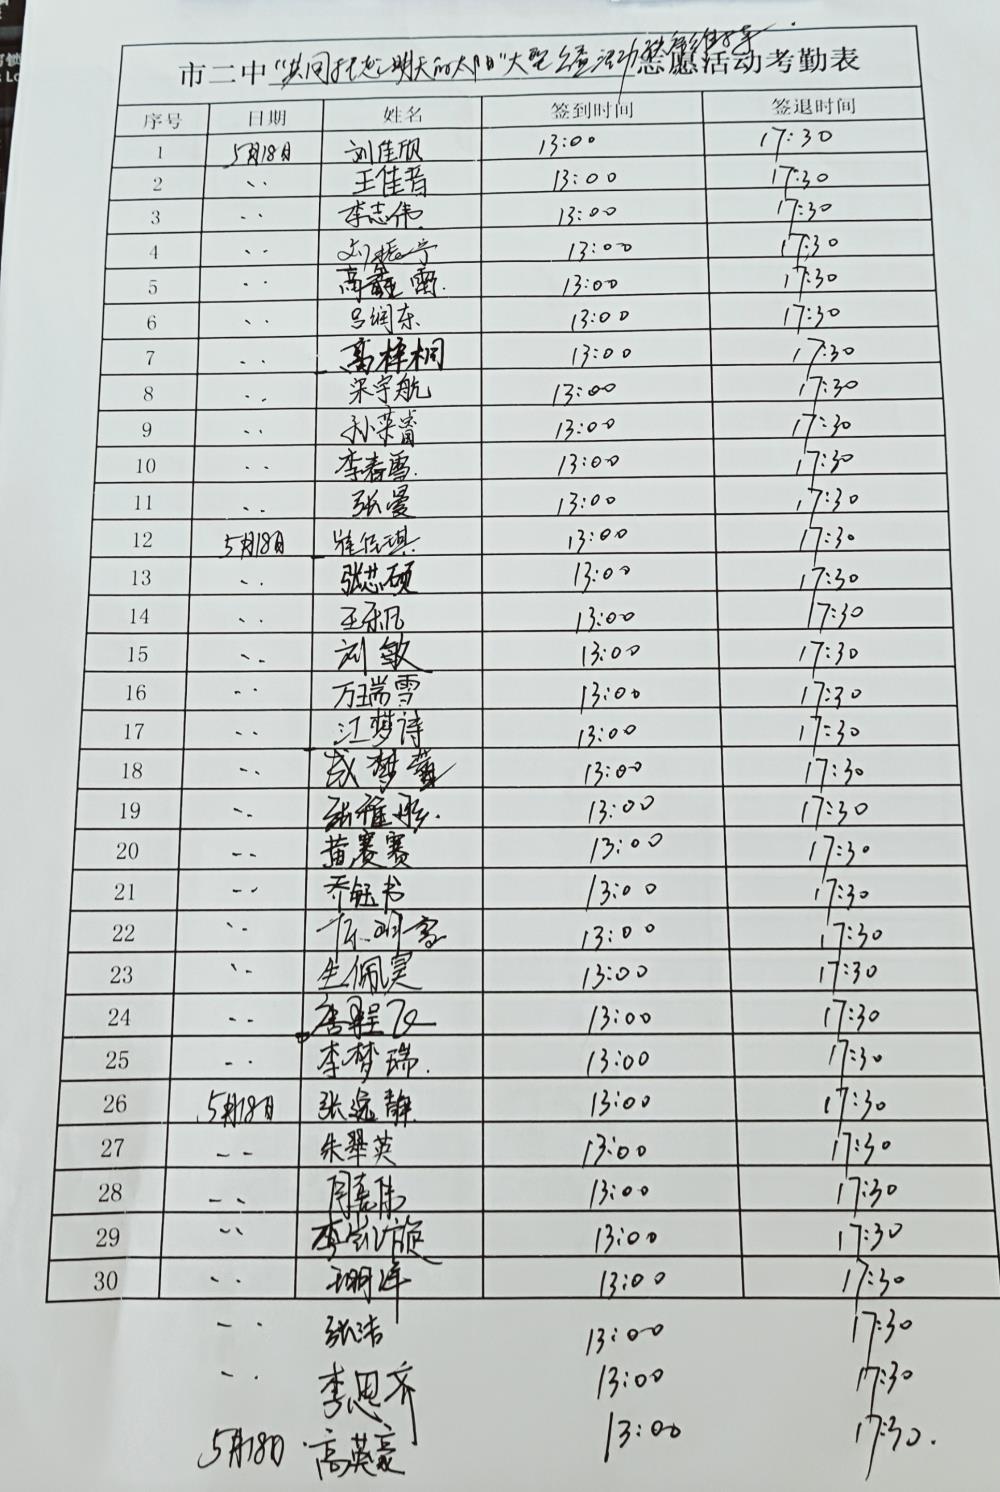 市二中"共同托起明天的太阳"大型公益活动秩序维持志愿活动考勤表
序号 日期 姓名 签到时间 签退时间
1 5月18日 刘佳欣 13:00 17:30
2 ·· 王佳音 13:00 17:30
3 ·· 李志伟 13:00 17:30
4 ·· 刘振宁 13:00 17:30
5 ·· 高鑫雷 13:00 17:30
6 ·· 吕润东 13:00 17:30
7 ·· 高梓桐 13:00 17:30
8 ·· 宋宇航 13:00 17:30
9 ·· 孙荣睿 13:00 17:30
10 ·· 李春雪 13:00 17:30
11 ·· 张曼 13:00 17:30
12 5月18日 崔佳琪 13:00 17:30
13 ·· 张芯硕 13:00 17:30
14 ·· 王乐凡 13:00 17:30
15 ·· 刘敏 13:00 17:30
16 ·· 万瑞雪 13:00 17:30
17 ·· 江梦诗 13:00 17:30
18 ·· 梦 13:00 17:30
19 ·· 张雅彤 13:00 17:30
20 ·· 黄赛赛 13:00 17:30
21 ·· 乔钰书 13:00 17:30
22 ·· 陈明雪 13:00 17:30
23 ·· 生佩昊 13:00 17:30
24 ·· 唐程飞 13:00 17:30
25 ·· 李梦瑞 13:00 17:30
26 5月18日 张远静 13:00 17:30
27 ·· 朱翠英 13:00 17:30
28 ·· 伟 13:00 17:30
29 ·· 李 13:00 17:30
30 ·· 13:00 17:30
·· 张洁 13:00 17:30
·· 李思齐 13:00 17:30
5月18日 高英豪 13:00 17:30.